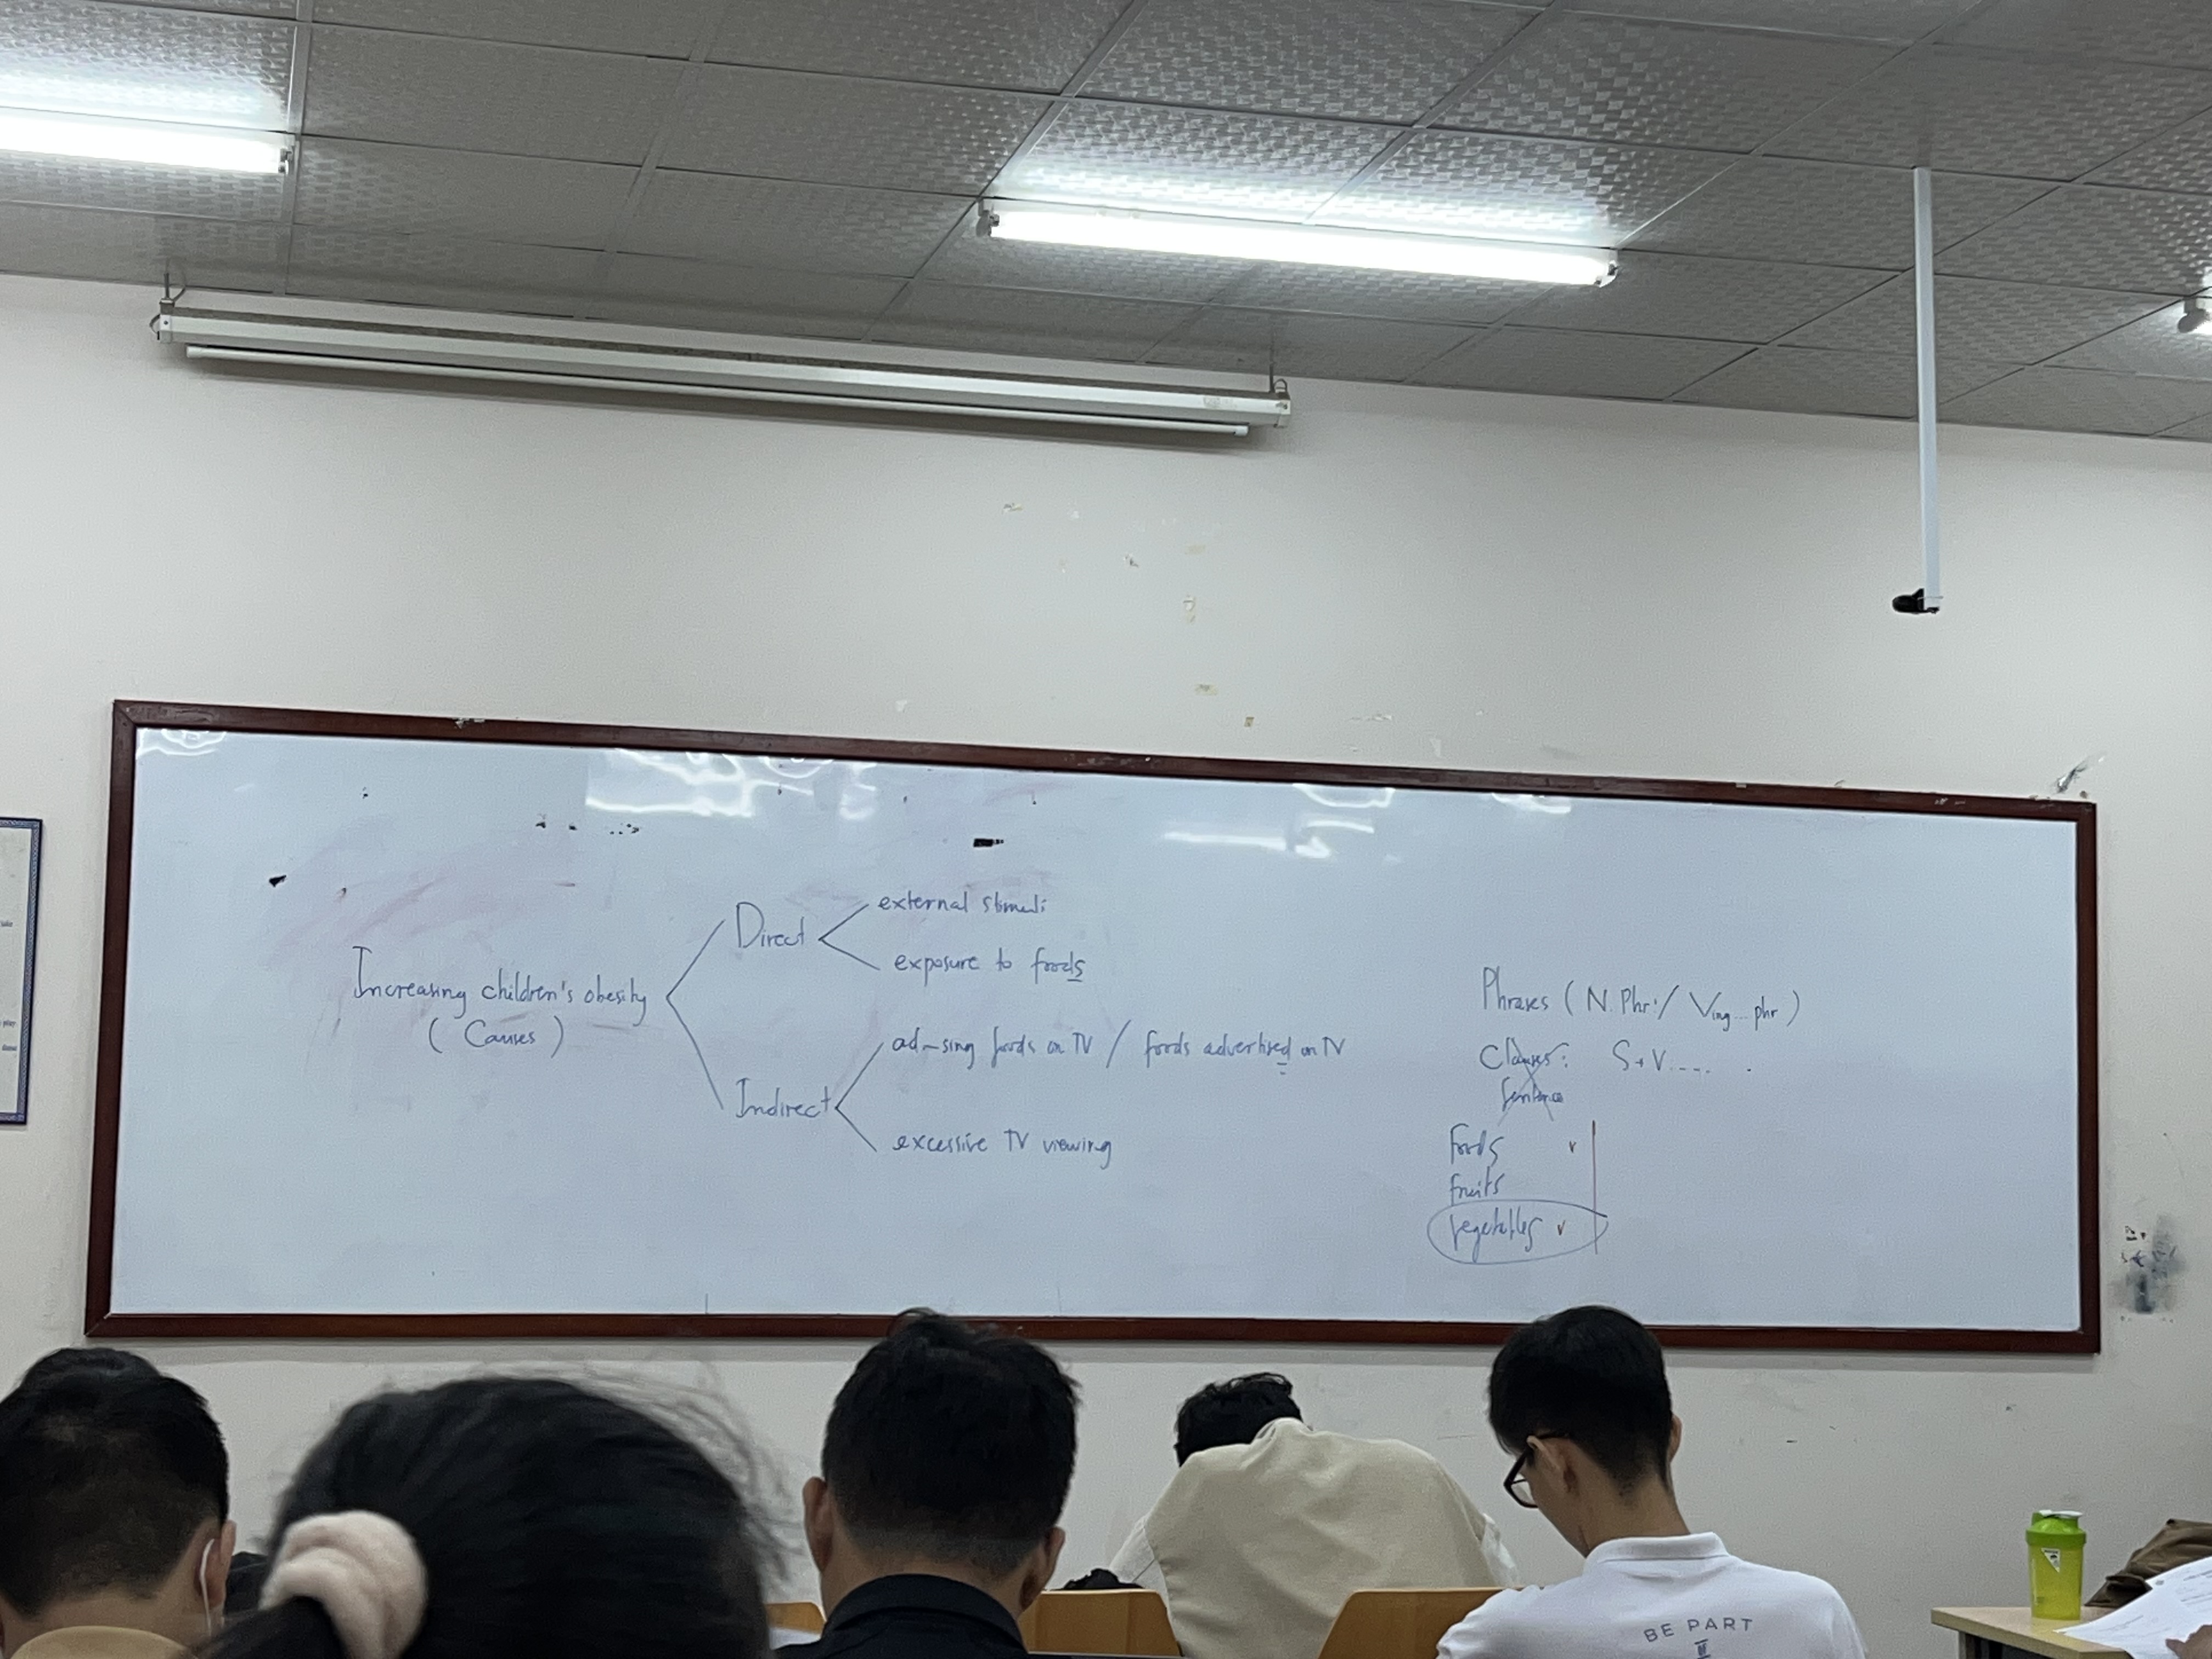 Increasing children's obesity
( Causes )
Direct
external stimuli
exposure to foods
Indirect
ad~sing foods on TV / foods advertised on TV
excessive TV viewing
Phrases ( N. Phr. / Ving... phr )
Clauses: S+V.... .
Sentence
Foods v
fruits
vegetables v
BE PART